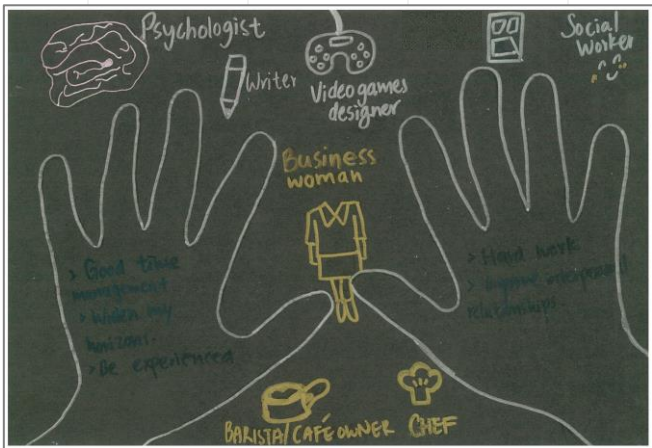 Psychologist
Writer
Videogames
designer
Social
Worker
Business
woman
> Good time
management
> Widen my
horizons.
> Be experienced
> Hard work
> improve interpersonal
relationships.
BARISTA/CAFÉ OWNER
CHEF